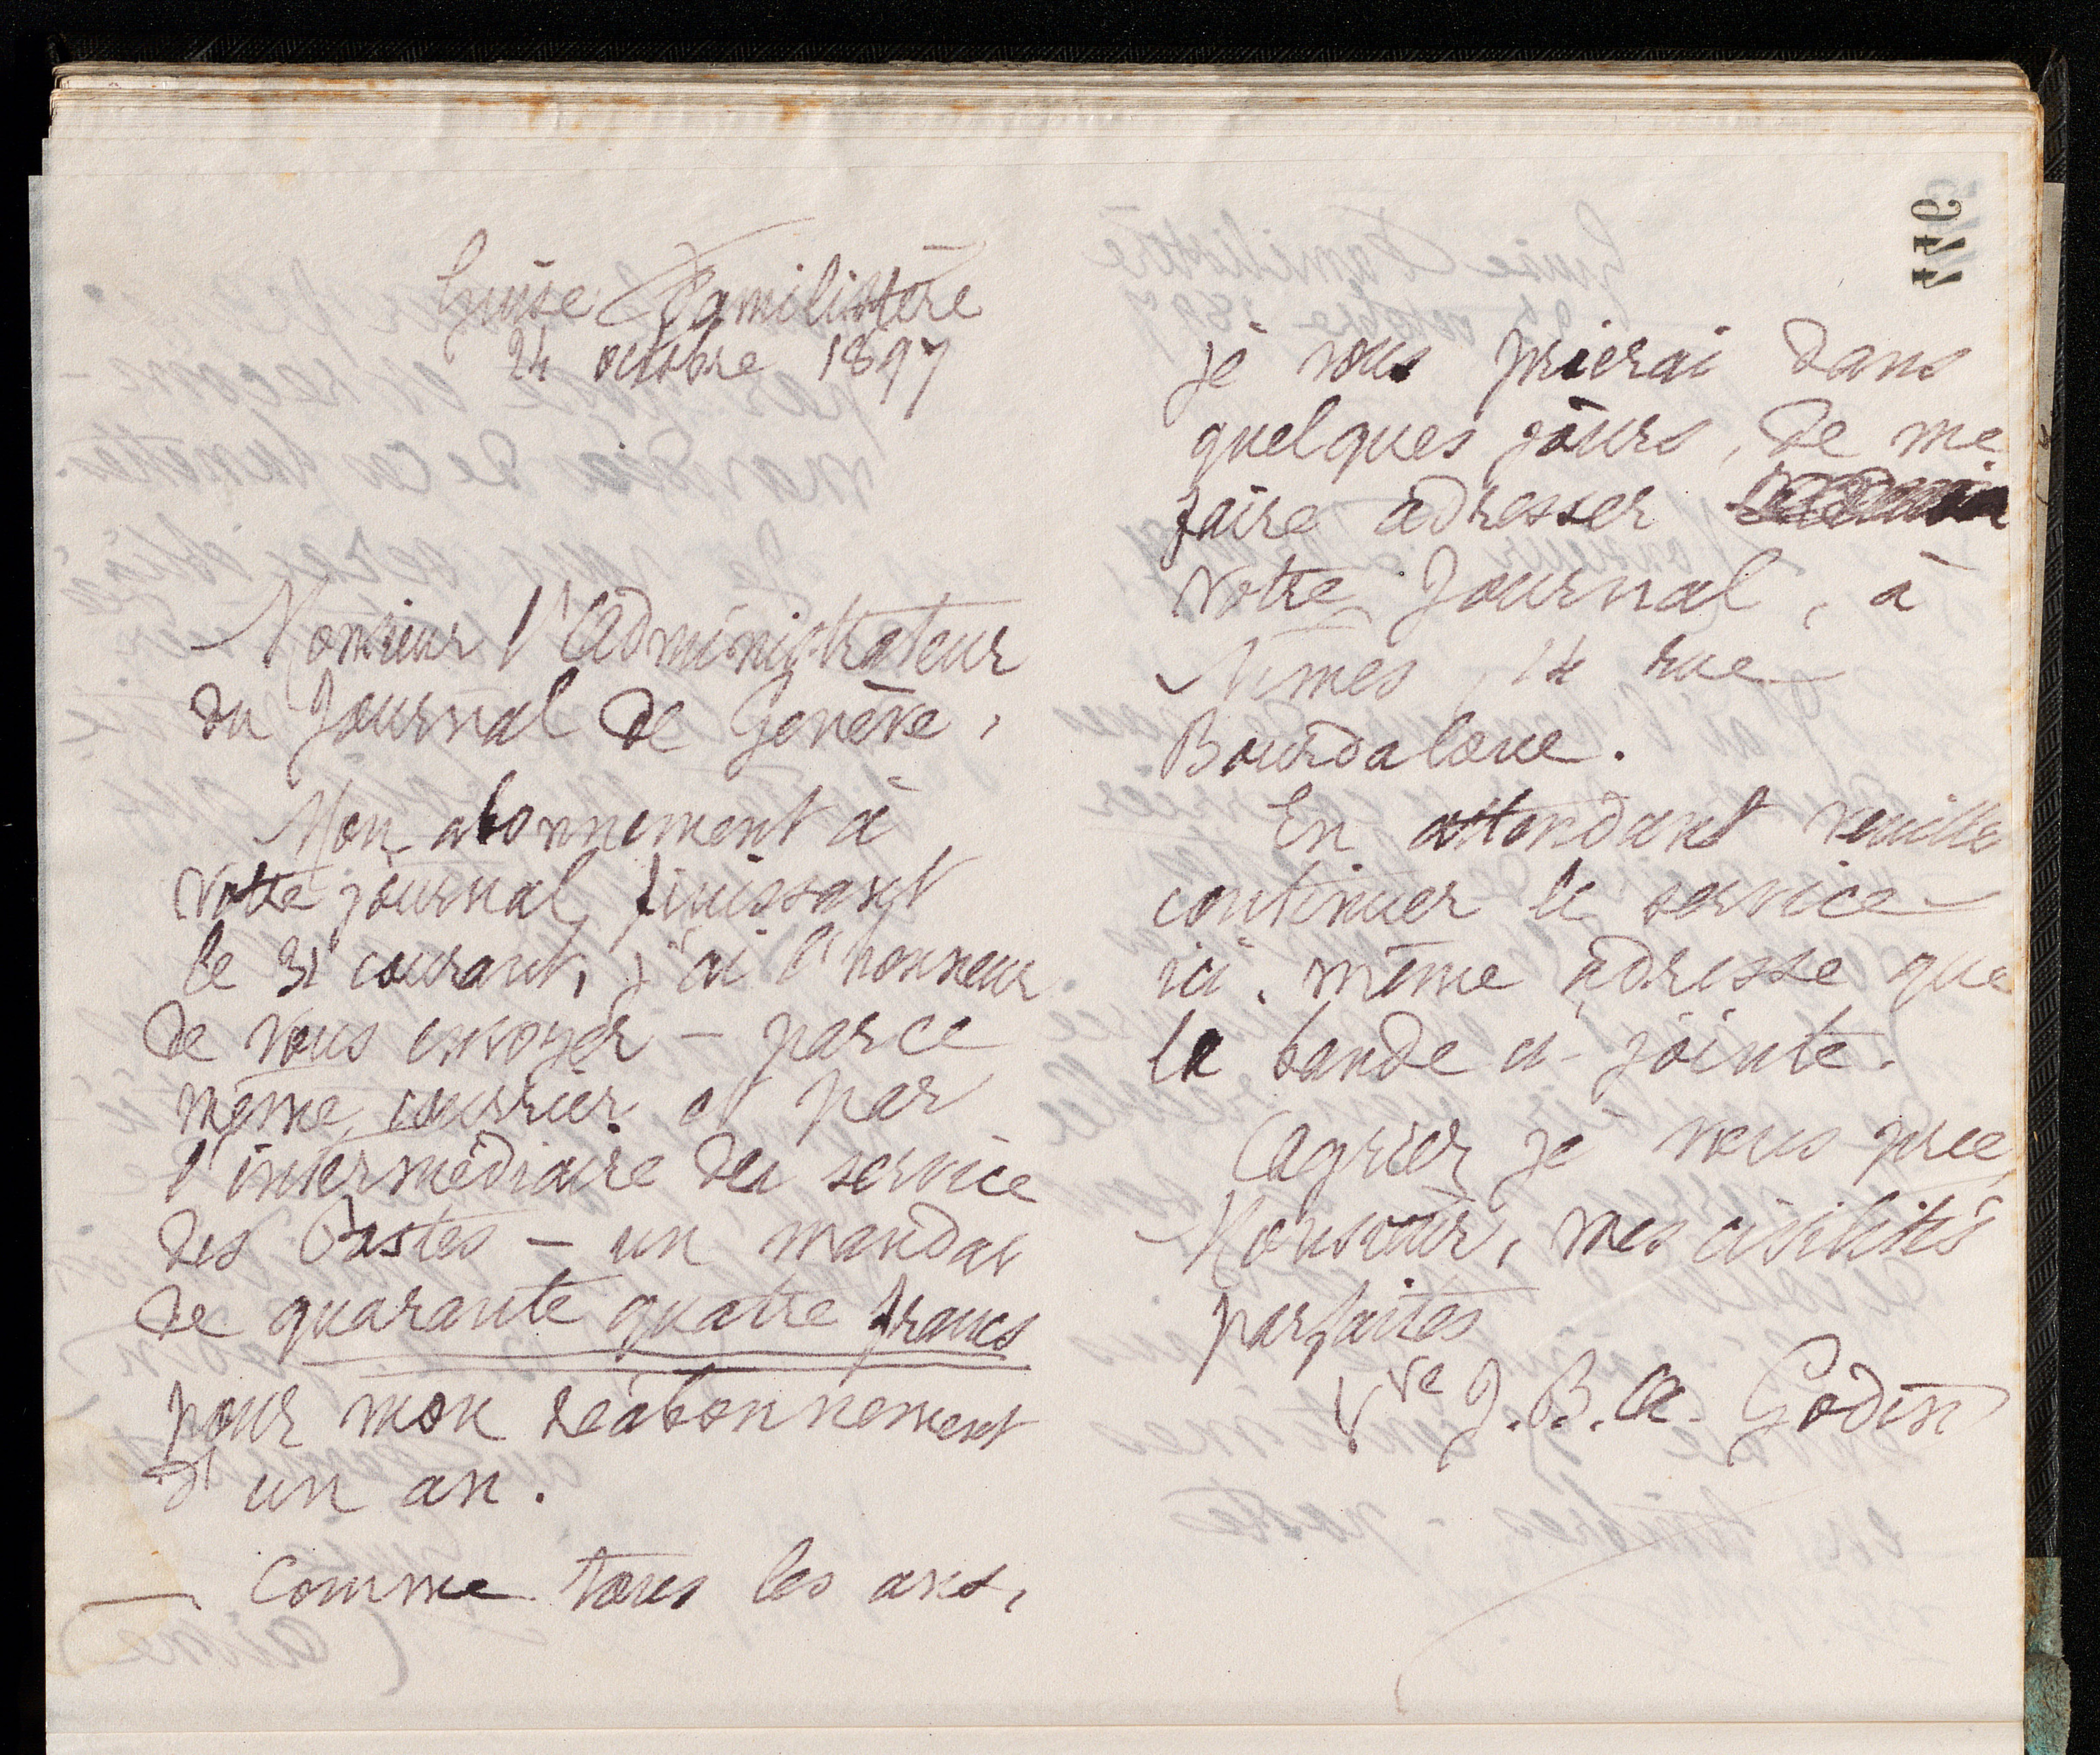 Guise Familistère
24 octobre 1897
Monsieur l'Administrateur
du Journal de Genève,
Mon abonnement à
votre journal finissant
le 31 courant, j'ai l'honneur
de vous envoyer - par ce
même courrier et par
l'intermédiaire du service
des Postes - un mandat
de quarante quatre francs
pour mon réabonnement
d'un an.
Comme tous les ans,
446
je vous prierai dans
quelques jours, de me
faire adresser
votre Journal, à
Nîmes, 14 rue
Bourdaloue.
En attendant veuillez
continuer le service
ici, même adresse que
la bande ci-jointe.
Agréez je vous prie,
Monsieur, mes civilités
parfaites
Vve J.B.A. Godin